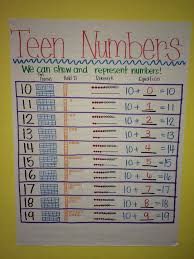 Teen Numbers
We can show and represent numbers!
10 10+0=10
11 10+1=11
12 10+2=12
13 10+3=13
14 10+4=14
15 10+5=15
16 10+6=16
17 10+7=17
18 10+8=18
19 10+9=19